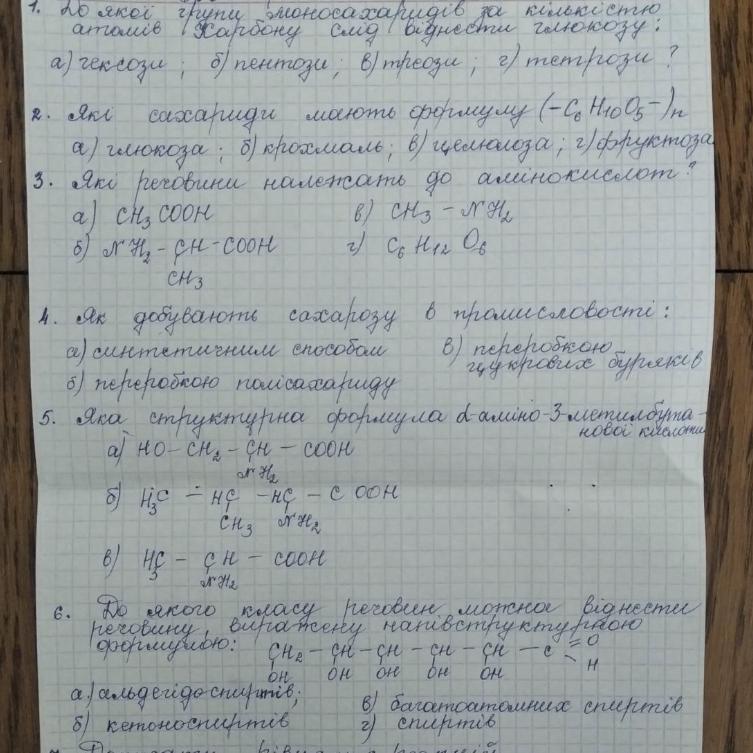 1. До якої групи моносахаридів за кількістю
атомів Карбону слід віднести глюкозу:
а) гексози; б) пентози; в) треози; г) тетрози?
2. Які сахариди мають формулу (-C6H10O5-)n
а) глюкоза; б) крохмаль; в) целюлоза; г) фруктоза
3. Які речовини належать до амінокислот?
а) CH3COOH в) CH3 - NH2
б) NH2 - CH - COOH г) C6H12O6
CH3
4. Як добувають сахарозу в промисловості:
а) синтетичним способом в) переробкою
цукрових буряків
б) переробкою полісахариду
5. Яка структурна формула α-аміно-3-метилбута-
нової кислоти
а) HO - CH2 - CH - COOH
NH2
б) H3C - HC - HC - COOH
CH3 NH2
в) H3C - CH - COOH
NH2
6. До якого класу речовин можна віднести
речовину, виражену напівструктурною
формулою: CH2 - CH - CH - CH - CH - C = O
OH OH OH OH OH - H
а) альдегідоспиртів; в) багатоатомних спиртів
б) кетоноспиртів г) спиртів